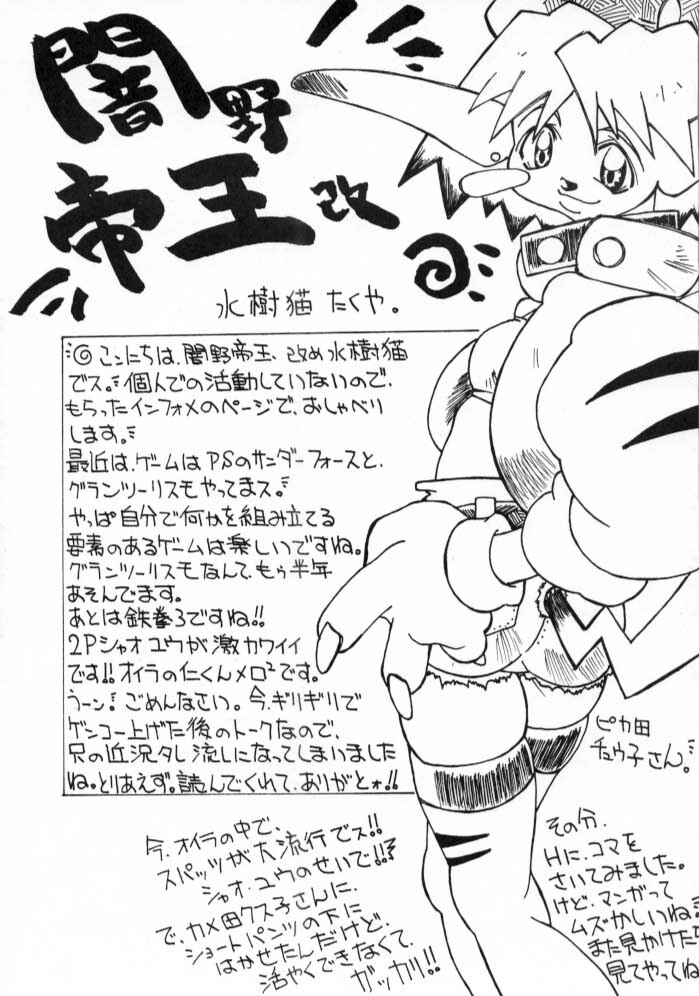 闇野
帝王改
水樹猫 たくや。
こンにちは、闇野帝王、改め水樹猫
でス。個人での活動していないので、
もらったインフォメのページで、おしゃべり
します。
最近は、ゲームはPSのサンダーフォースと、
グランツーリスモやってまス。
やっぱ自分で何かを組み立てる
要素のあるゲームは楽しいですね。
グランツーリスモなんて、もぅ半年
あそんでます。
あとは鉄拳3ですね!!
2Pシャオユウが激カワイイ
です!!オイラの仁くんメロ²です。
うーン!ごめんなさい。今、ギリギリで
ゲンコー上げた後のトークなので、
只の近況タレ流しになってしまいました
ね。とりあえず。読んでくれて、ありがとォ!!
ピカ田
チュウ子さん。
今、オイラの中で、
スパッツが大流行でス!!
シャオ・ユウのせいで!!
で、カメ田クス子さんに、
ショートパンツの下に
はかせたんだけど、
活やくできなくて、
ガッカリ!!
その分、
Hに、コマを
さいてみました。
けど、マンガって
ムズかしいね。
また見かけたら
見てやってね